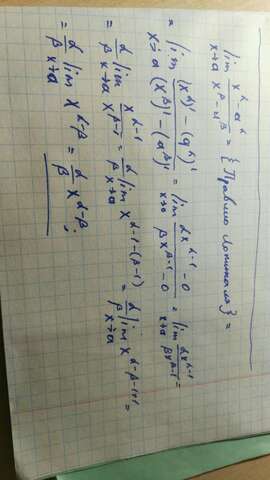 lim x→a (x^α - a^α)/(x^β - a^β) = {Правило Лопиталя} =
= lim x→a ((x^α)' - (a^α)')/((x^β)' - (a^β)') = lim x→a (αx^(α-1) - 0)/(βx^(β-1) - 0) = lim x→a αx^(α-1)/βx^(β-1) =
= α/β lim x→a x^(α-1)/x^(β-1) = α/β lim x→a x^(α-1-(β-1)) = α/β lim x→a x^(α-β-1+1) =
= α/β lim x→a x^(α-β) = α/β x^(α-β);